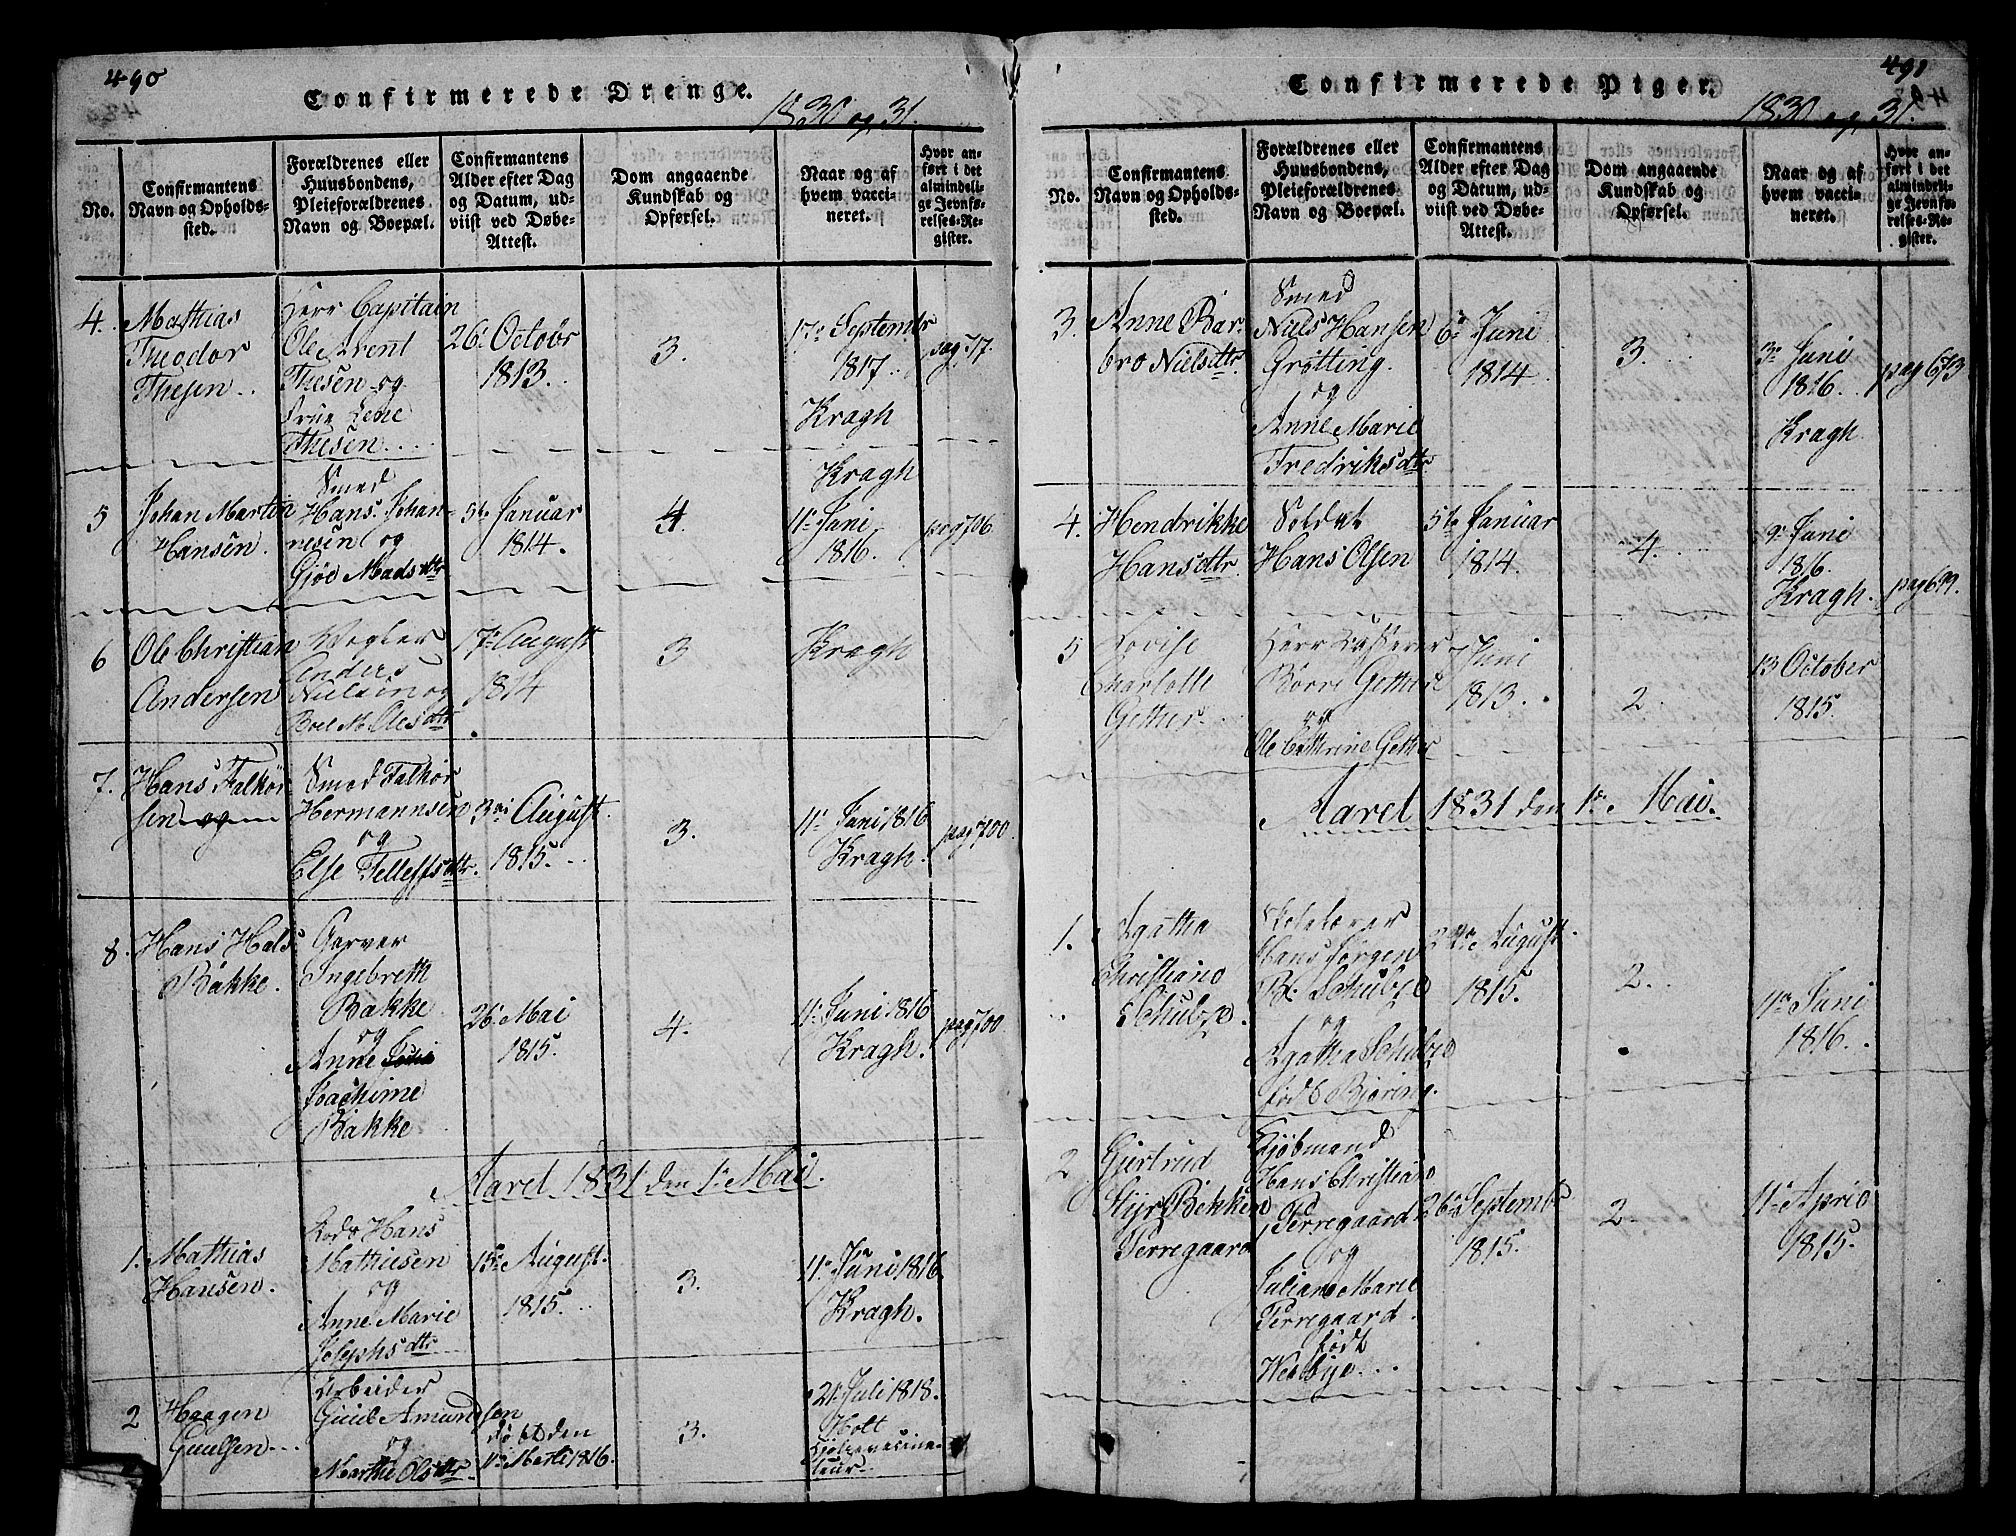 490
Confirmerede Drenge.
1830 og 31.
No.
Confirmantens
Navn og Opholds-
sted.
Forældrenes eller
Huusbondens,
Pleieforældrenes
Navn og Boepæl.
Confirmantens
Alder efter Dag
og Datum, ud-
viist ved Døbe-
Attest.
Dom angaaende
Kundskab og
Opførsel.
Naar og af
hvem vacci-
neret.
Hvor an-
ført i det
almindeli-
ge Jevnfø-
relses-Re-
gister.
4.
Mathias
Theodor
Thesen
Herr Capitain
Ole Arent
Thesen og
Frue Lene
Thesen
26 Octobr
1813.
3.
17 Septembr
1817.
Kragh
pag 77.
5
Johan Martin
Hansen.
Smed
Hans Johan-
nesen og
Gjøe Madsdtr
5te Januar
1814.
4
Kragh
11 Juni
1816.
pag 706
6
Ole Christian
Andersen
Anders
Nielsen og
Boel M. Olesdtr
17 August
1814
3
Kragh
7.
Hans Falkor
sen
Smed Falkor
Hermannsen
og
Else Tellefsdtr
3 August
1815.
3.
11 Juni 1816
Kragh.
pag 700.
8.
Hans Hals
Bakke.
Garver
Ingebreth
Bakke
og
Anne
Joachime
Bakke
26 Mai
1815.
4.
11 Juni 1816
Kragh.
pag 700
Aaret 1831 den 1 Mai.
1.
Mathias
Hansen.
Hans
Mathiesen
og
Anne Marie
Josephsdtr
15 August.
1815.
3.
11 Juni 1816.
Kragh.
2
Haagen
Guulsen
Arbeider
Guul Amundsen
og
Marthe Olsdtr
døbt den
11 Marti 1816.
3.
21 Juli 1818.
Holt
491
Confirmerede Piger.
1830 og 31.
No.
Confirmantens
Navn og Opholds-
sted.
Forældrenes eller
Huusbondens,
Pleieforældrenes
Navn og Boepæl.
Confirmantens
Alder efter Dag
og Datum, ud-
viist ved Døbe-
Attest.
Dom angaaende
Kundskab og
Opførsel.
Naar og af
hvem vacci-
neret.
Hvor an-
ført i det
almindeli-
ge Jevnfø-
relses-Re-
gister.
3.
Anne Bar-
bro Nielsdtr
Smed
Niels Hansen
Grötting.
og
Anne Marie
Fredriksdtr
6 Juni
1814.
3
3 Juni
1816.
Kragh.
pag 673
4.
Hendrikke
Hansdtr.
Soldat
Hans Olsen
5te Januar
1814.
4.
9 Juni
1816.
Kragh.
pag 699.
5
Lovise
Charlotte
Gether
Herr
Börre Gether
og
Ole Cathrine Gether
7 Juni
1813.
2.
13 October
1815.
Aaret 1831 den 1 Mai.
1.
Agatha
Christiane
Schulze.
Hans Jörgen
Schulze
og
Agatha Schulze
född Bjering.
24 August.
1815.
2.
11 Juni
1816.
2
Giertrud
Styr Bekken
Perregaard
Kjöbmand
Hans Christian
Perregaard
og
Juliane Marie
Perregaard
född
Westbye
26 Septemb
1815.
2.
11 April
1815.